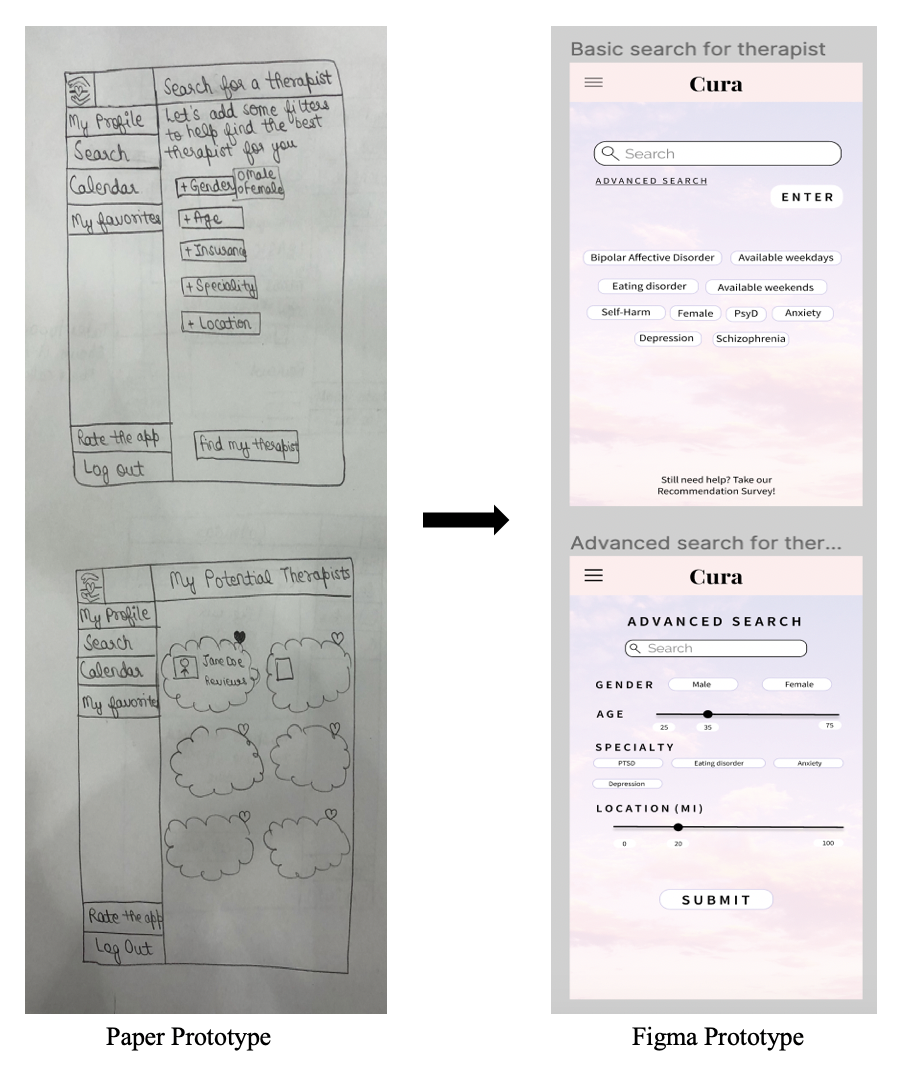 Search for a therapist
My Profile
Search
Calendar
My favorites
Let's add some filters
to help find the best
therapist for you
+ Gender
o male
o female
+ Age
+ Insuranc
+ Speciality
+ Location
find my therapist
Rate the app
Log out
My Potential Therapists
My Profile
Search
Calendar
My favorites
Jane Doe
Reviews
Rate the app
Log Out
Paper Prototype
Basic search for therapist
Cura
Search
ADVANCED SEARCH
ENTER
Bipolar Affective Disorder Available weekdays
Eating disorder Available weekends
Self-Harm Female PsyD Anxiety
Depression Schizophrenia
Still need help? Take our
Recommendation Survey!
Advanced search for ther...
Cura
ADVANCED SEARCH
Search
GENDER Male Female
AGE
25 35 75
SPECIALTY
PTSD Eating disorder Anxiety
Depression
LOCATION (MI)
0 20 100
SUBMIT
Figma Prototype